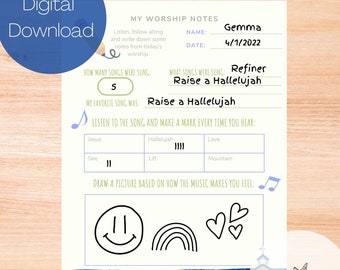 Digital
Download
MY WORSHIP NOTES
Listen, follow along
and write down some
notes from today's
worship.
NAME: Gemma
DATE: 4/1/2022
HOW MANY SONGS WERE SUNG:
5
WHAT SONGS WERE SUNG:
Refiner
Raise a Hallelujah
MY FAVORITE SONG WAS: Raise a Hallelujah
LISTEN TO THE SONG AND MAKE A MARK EVERY TIME YOU HEAR:
Jesus Hallelujah Love
IIII
See Lift Mountain
II
DRAW A PICTURE BASED ON HOW THE MUSIC MAKES YOU FEEL: